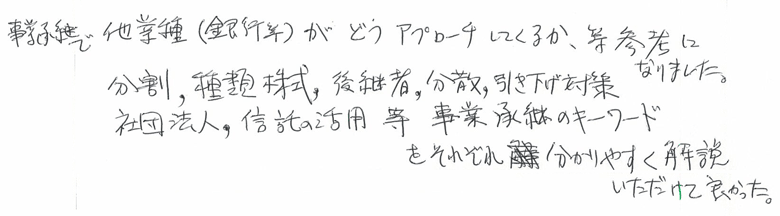 事業承継で他業種（銀行等）がどうアプローチしてくるか、等参考に
なりました。
分割，種類株式，後継者，分散，引き下げ対策
社団法人，信託の活用 等 事業承継のキーワード
をそれぞれ分かりやすく解説
いただけて良かった。